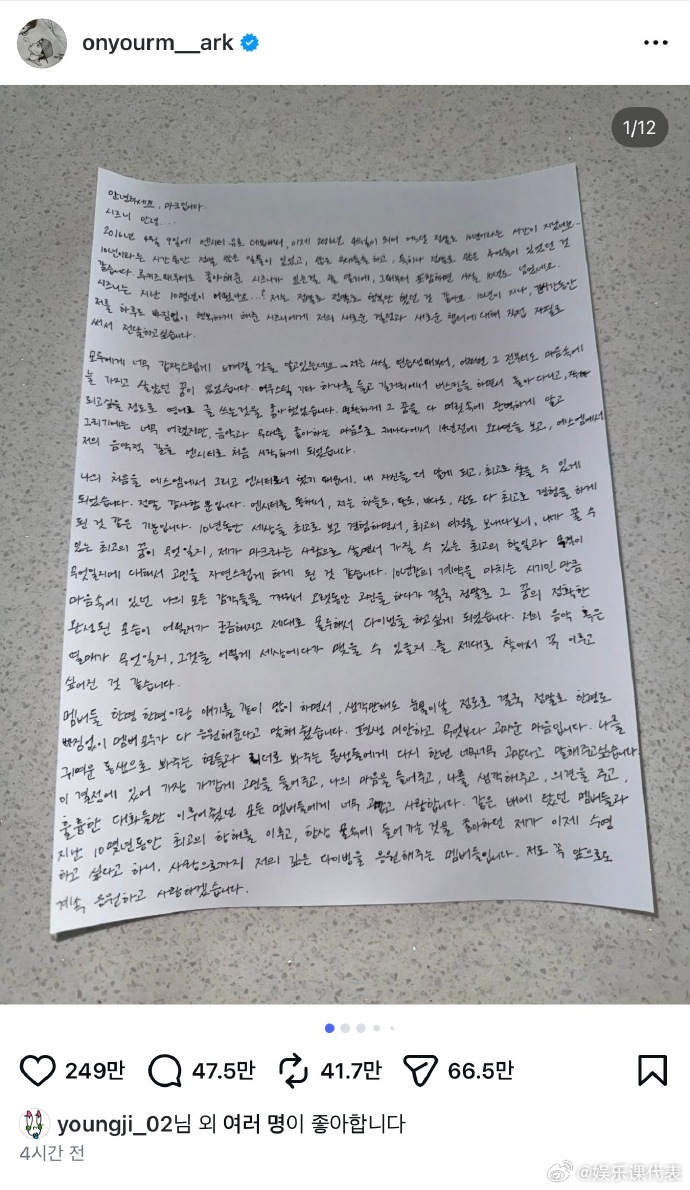 onyourm__ark
1/12
안녕하세요, 마크입니다.
시즈니 안녕....
2016년 4월 9일에 엔시티 유로 데뷔해서, 이제 2026년 4월이 되어 어느덧 정말로 10년이라는 시간이 지났네요..
10년이라는 시간 동안 정말 많은 일들이 있었고, 많은 무대들을 하고, 특히나 정말로 많은 추억들이 있었던 것
같습니다. 루키즈 때부터도 좋아해준 시즈니가 있는걸 잘 알기에, 그때부터 포함하면 사실 10년도 넘었네요.
시즈니는 지난 10몇년이 어땠나요...? 저는 정말로 정말로 행복만 했던 것 같아요. 10년이 지나, 긴 시간동안
저를 하루도 빠짐없이 행복하게 해준 시즈니에게 저의 새로운 결정과 새로운 챕터에 대해 직접 자필로
써서 전달하고싶습니다.
모두에게 너무 갑작스럽게 느껴질 것을 알고있는데요... 저는 사실 연습생때부터, 어쩌면 그 전부터도 마음속에
늘 가지고 살았던 꿈이 있었습니다. 어쿠스틱 기타 하나를 들고 길거리에서 버스킹을 하면서 돌아다니고,
되고싶을 정도로 영어로 글 쓰는것을 좋아했었습니다. 막연하게 그 꿈을 다 머릿속에 완벽하게 알고
그리기에는 너무 어렸지만, 음악과 무대를 좋아하는 마음으로 캐나다에서 14년전에 오디션을 보고, 에스엠에서
저의 음악적 길을 엔시티로 처음 시작하게 되었습니다.
나의 처음을 에스엠에서 그리고 엔시티로서 했기 때문에, 내 자신을 더 알게 되고, 최고로 찾을 수 있게
되었습니다. 정말 감사할 뿐입니다. 엔시티를 통해서, 저는 하늘도, 땅도, 바다도, 산도 다 최고로 경험을 하게
된 것 같은 기분입니다. 10년동안 세상을 최고로 보고 경험하면서, 최고의 여정을 보내다보니, 내가 꿀 수
있는 최고의 꿈이 무엇일지, 제가 마크라는 사람으로 살면서 가질 수 있는 최고의 할일과 목적이
무엇일지에 대해서 고민을 자연스럽게 하게 된 것 같습니다. 10년간의 계약을 마치는 시기인 만큼
마음속에 있던 나의 모든 감각들을 깨워서 오랫동안 고민을 하다가 결국 정말로 그 꿈의 정확한
완성된 모습이 어떨런가 궁금해지고 제대로 몰두해서 다이빙을 하고싶게 되었습니다. 저의 음악 혹은
열매가 무엇일지, 그것을 어떻게 세상에다가 맺을 수 있을지...를 제대로 찾아서 꼭 이루고
싶어진 것 같습니다.
멤버들 한명 한명이랑 얘기를 같이 많이 하면서, 생각만해도 눈물이날 정도로 결국 정말로 한명도
빠짐없이 멤버 모두가 다 응원해준다고 말해 줬습니다. 평생 미안하고 무엇보다 고마운 마음입니다. 나를
귀여운 동생으로 봐주는 형들과 리더로 봐주는 동생들에게 다시 한번 너무너무 고맙다고 말해주고싶습니다
이 결정에 있어 가장 가깝게 고민을 들어주고, 나의 마음을 들어주고, 나를 생각해주고, 의견을 주고,
훌륭한 대화들만 이루어줬던 모든 멤버들에게 너무 고맙고 사랑합니다. 같은 배에 탔던 멤버들과
지난 10몇년동안 최고의 항해를 이루고, 항상 물속에 들어가는 것을 좋아하던 제가 이제 수영
하고 싶다고 하니, 사랑으로까지 저의 깊은 다이빙을 응원해주는 멤버들입니다. 저도 꼭 앞으로도
계속 응원하고 사랑하겠습니다.
249만 47.5만 41.7만 66.5만
youngji_02님 외 여러 명이 좋아합니다
4시간 전
@娱乐课代表